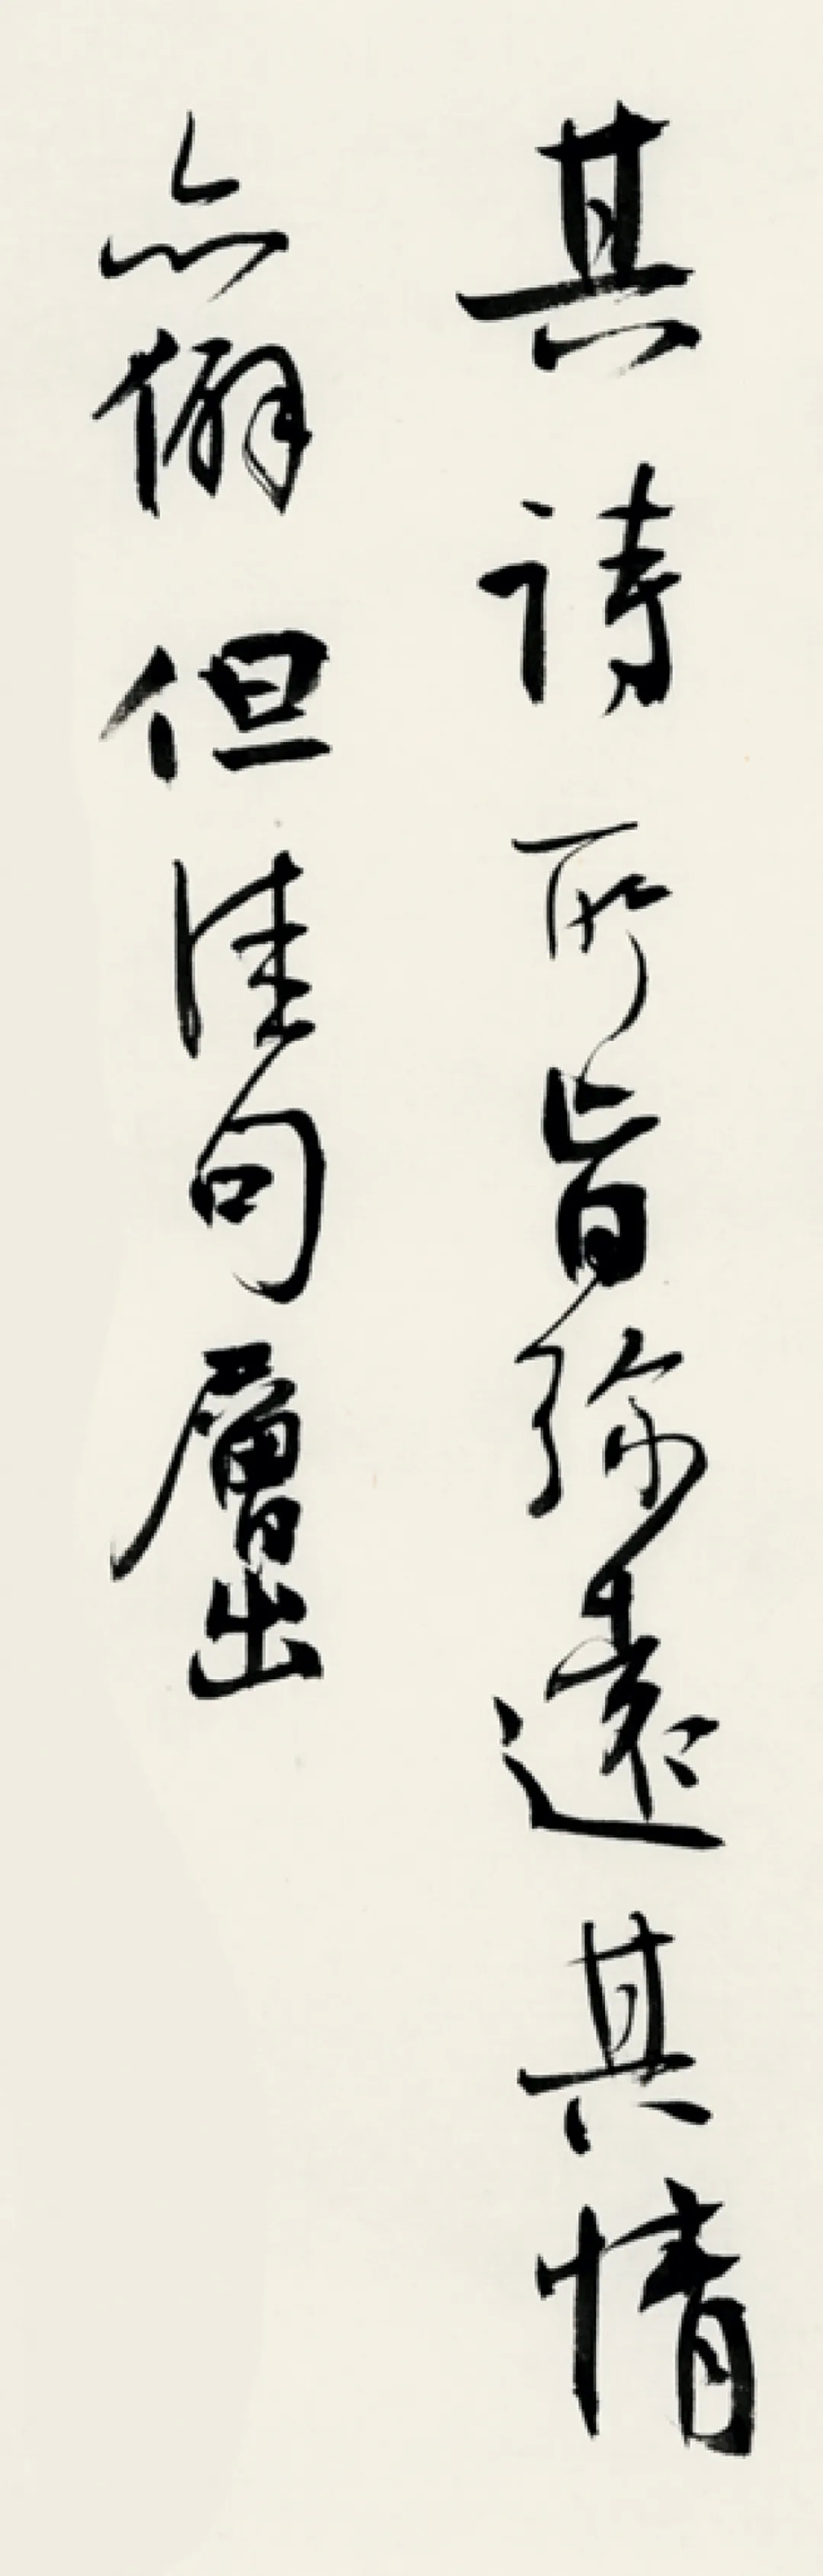 其詩所旨弥遠其情
亦僻但佳句層出